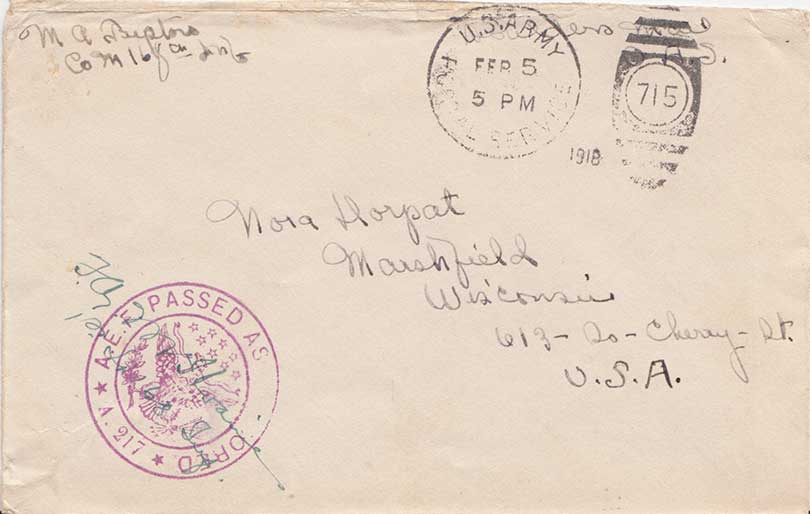 M A
Co M 168th Inf
U.S. ARMY
POSTAL SERVICE
FEB 5
5 PM
1918
715
Mail
Nora Horpat
Marshfield
Wisconsin
613-So-Cherry-St.
U.S.A.
A.E.F. PASSED AS CENSORED
★ A.217 ★